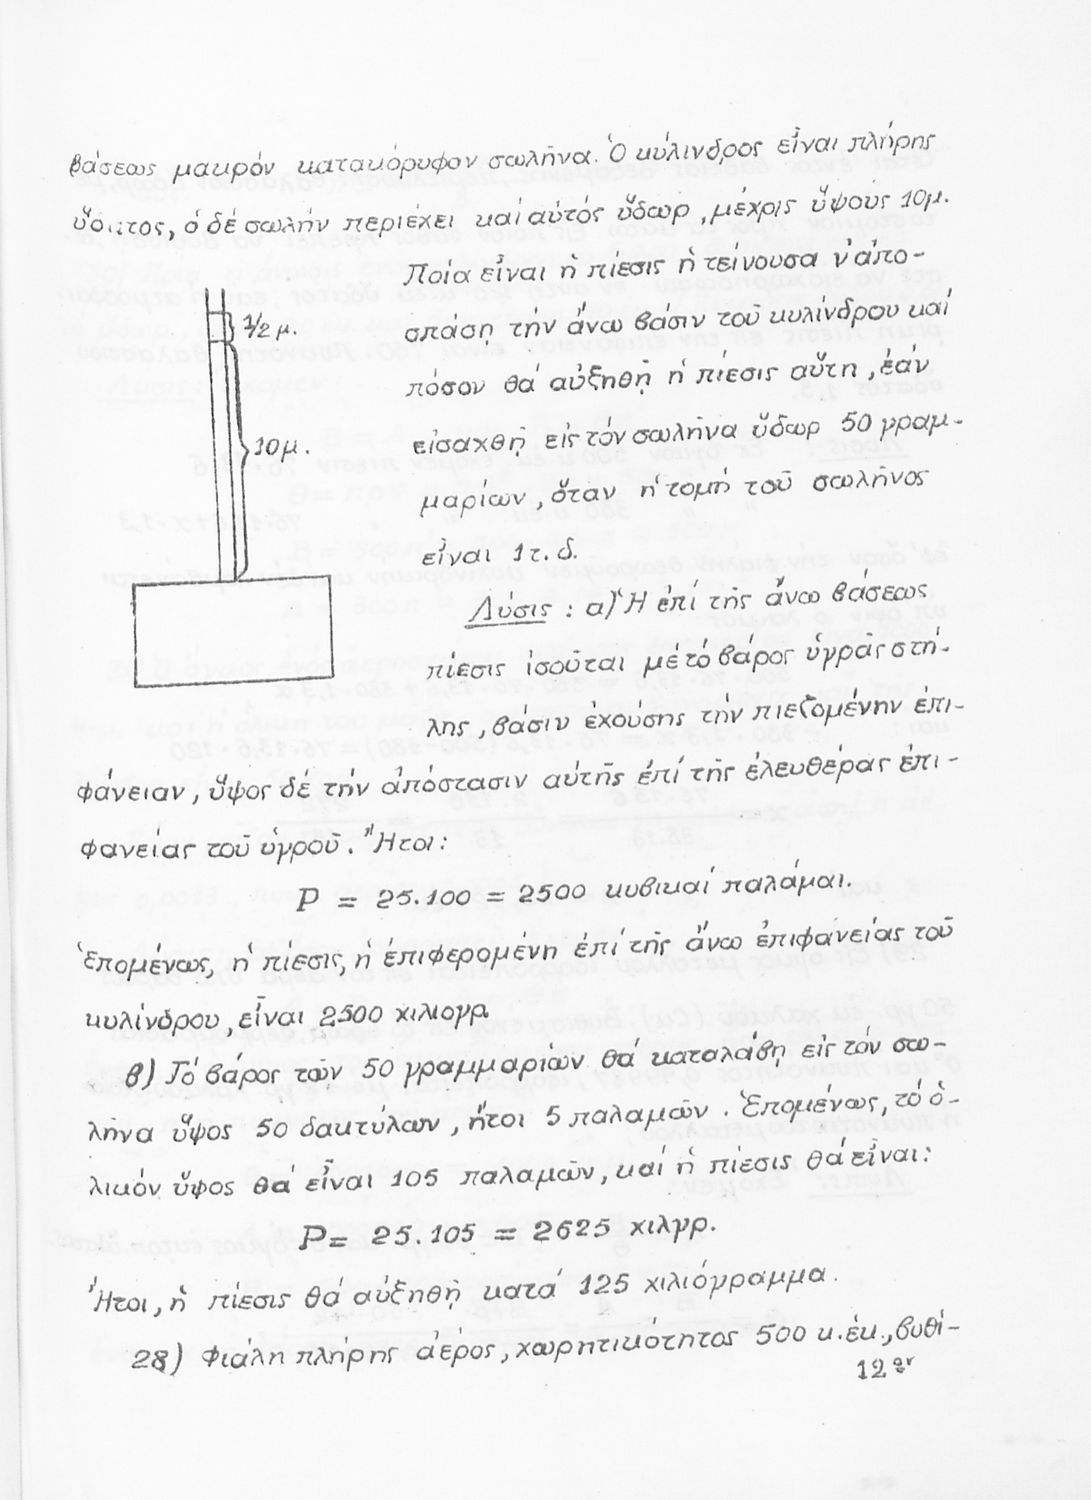 βάσεως μακρόν κατακόρυφον σωλῆνα. Ὁ κύλινδρος εἶναι πλήρης
ὕδατος, ὁ δέ σωλήν περιέχει καί αὐτός ὕδωρ, μέχρις ὕψους 10μ.
Ποία εἶναι ἡ πίεσις ἡ τείνουσα ν' ἀπο-
σπάσῃ τήν ἄνω βάσιν τοῦ κυλίνδρου καί
πόσον θά αὐξηθῇ ἡ πίεσις αὕτη, ἐάν
εἰσαχθῇ εἰς τόν σωλῆνα ὕδωρ 50 γραμ-
μαρίων, ὅταν ἡ τομή τοῦ σωλῆνος
εἶναι 1τ.δ.
1/2 μ.
10μ.
Λύσις: α) Ἡ ἐπί τῆς ἄνω βάσεως
πίεσις ἰσοῦται μέ τό βάρος ὑγρᾶς στή-
λης, βάσιν ἐχούσης τήν πιεζομένην ἐπι-
φάνειαν, ὕψος δέ τήν ἀπόστασιν αὐτῆς ἐπί τῆς ἐλευθέρας ἐπι-
φανείας τοῦ ὑγροῦ. Ἤτοι:
P = 25.100 = 2500 κυβικαί παλάμαι.
Ἑπομένως, ἡ πίεσις, ἡ ἐπιφερομένη ἐπί τῆς ἄνω ἐπιφανείας τοῦ
κυλίνδρου, εἶναι 2500 χιλιογρ.
β) Τό βάρος τῶν 50 γραμμαρίων θά καταλάβῃ εἰς τόν σω-
λῆνα ὕψος 50 δακτύλων, ἤτοι 5 παλαμῶν. Ἑπομένως, τό ὁ-
λικόν ὕψος θά εἶναι 105 παλαμῶν, καί ἡ πίεσις θά εἶναι:
P = 25.105 = 2625 χιλγρ.
Ἤτοι, ἡ πίεσις θά αὐξηθῇ κατά 125 χιλιόγραμμα.
28) Φιάλη πλήρης ἀέρος, χωρητικότητος 500 κ.ἑκ., βυθί-
12ον